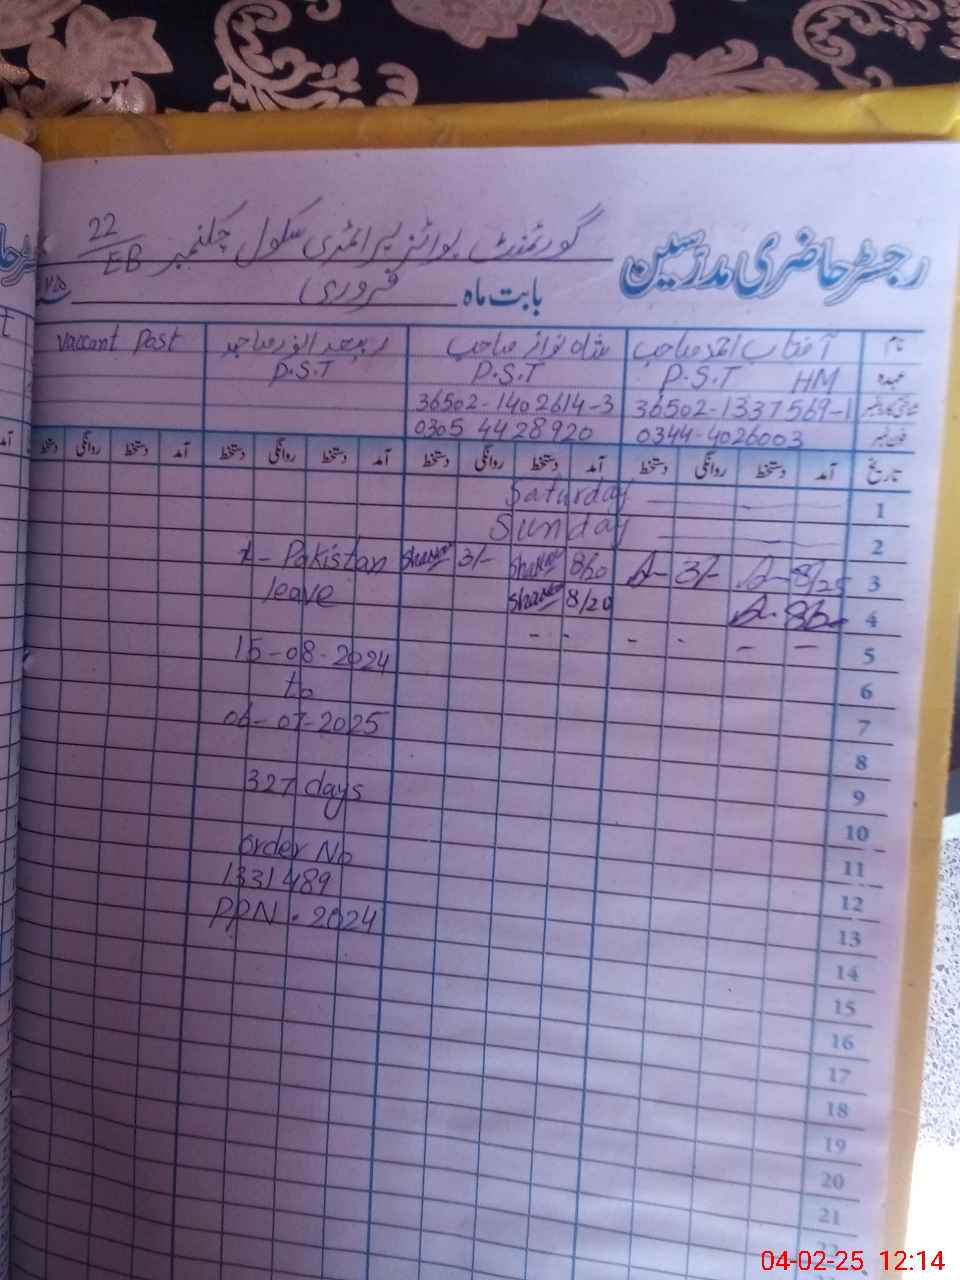 رجسٹر حاضری مدرسین گورنمنٹ بوائز پرائمری سکول چکنمبر 22/EB
بابت ماہ فروری
نام آفتاب احمد صاحب شاہ نواز صاحب Vaccant Post
عہدہ P.S.T HM P.S.T P.S.T
36502-1337569-1 36502-1402614-3
فون نمبر 0344-4026003 0305 4428920
تاریخ آمد دستخط روانگی دستخط آمد دستخط روانگی دستخط آمد دستخط روانگی دستخط آمد دستخط روانگی دستخط
1 Saturday
2 Sunday
3 8/25 3/- 8/20 3/- x-Pakistan
4 8/20 leave
5 15-08-2024
6 to
7 06-07-2025
8
9 327 days
10
11 order No
12 1331489
13 PPN.2024
14
15
16
17
18
19
20
21
22
04-02-25 12:14